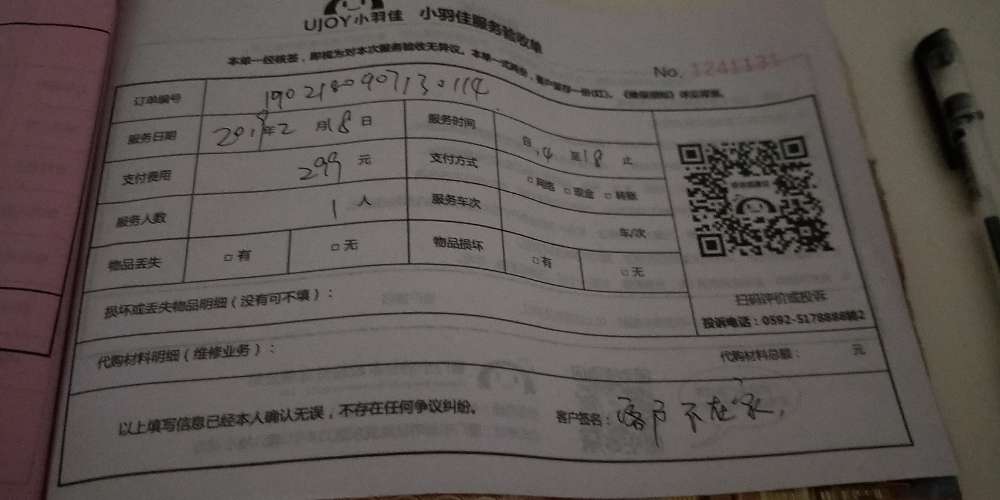 UJOY小羽佳 小羽佳服务验收单
本单一经核签，即视为对本次服务验收无异议。本单一式两份，客户留存一份(红)。《维保细则》详见背面。
No. 1241131
订单编号 1902180907130114
服务日期 2019年2月18日 服务时间 自14至18止
支付费用 299元 支付方式 □网络 □现金 □转账
服务人数 1人 服务车次 车/次
物品丢失 □有 □无 物品损坏 □有 □无
扫码评价或投诉
投诉电话：0592-5178888转2
损坏或丢失物品明细（没有可不填）：
代购材料明细（维修业务）： 代购材料总额： 元
以上填写信息已经本人确认无误，不存在任何争议纠纷。 客户签名：客户不在家.